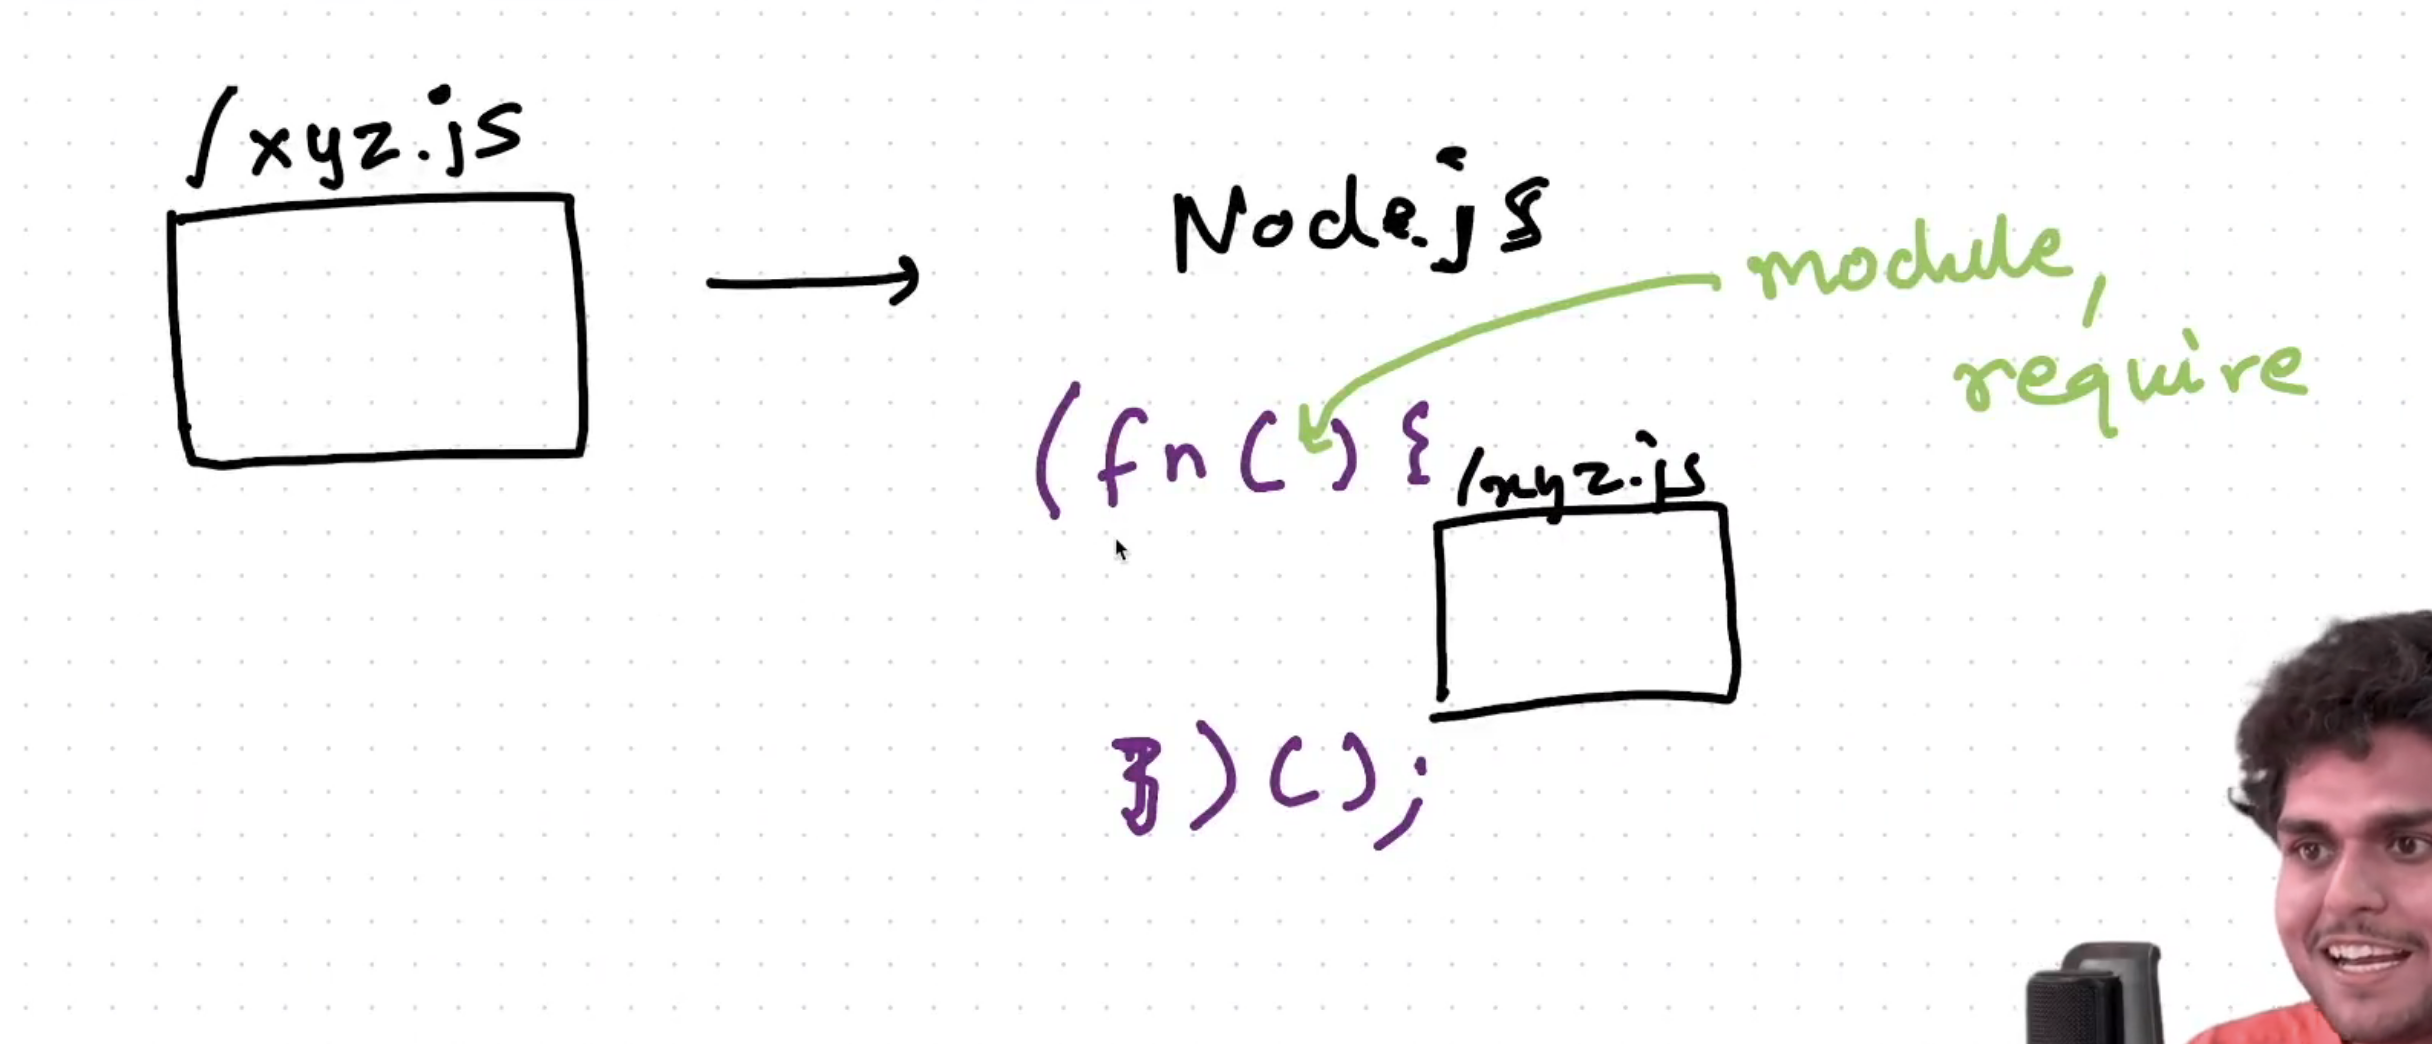 /xyz.js
Node.js
module,
require
(fn() {
/xyz.js
})();